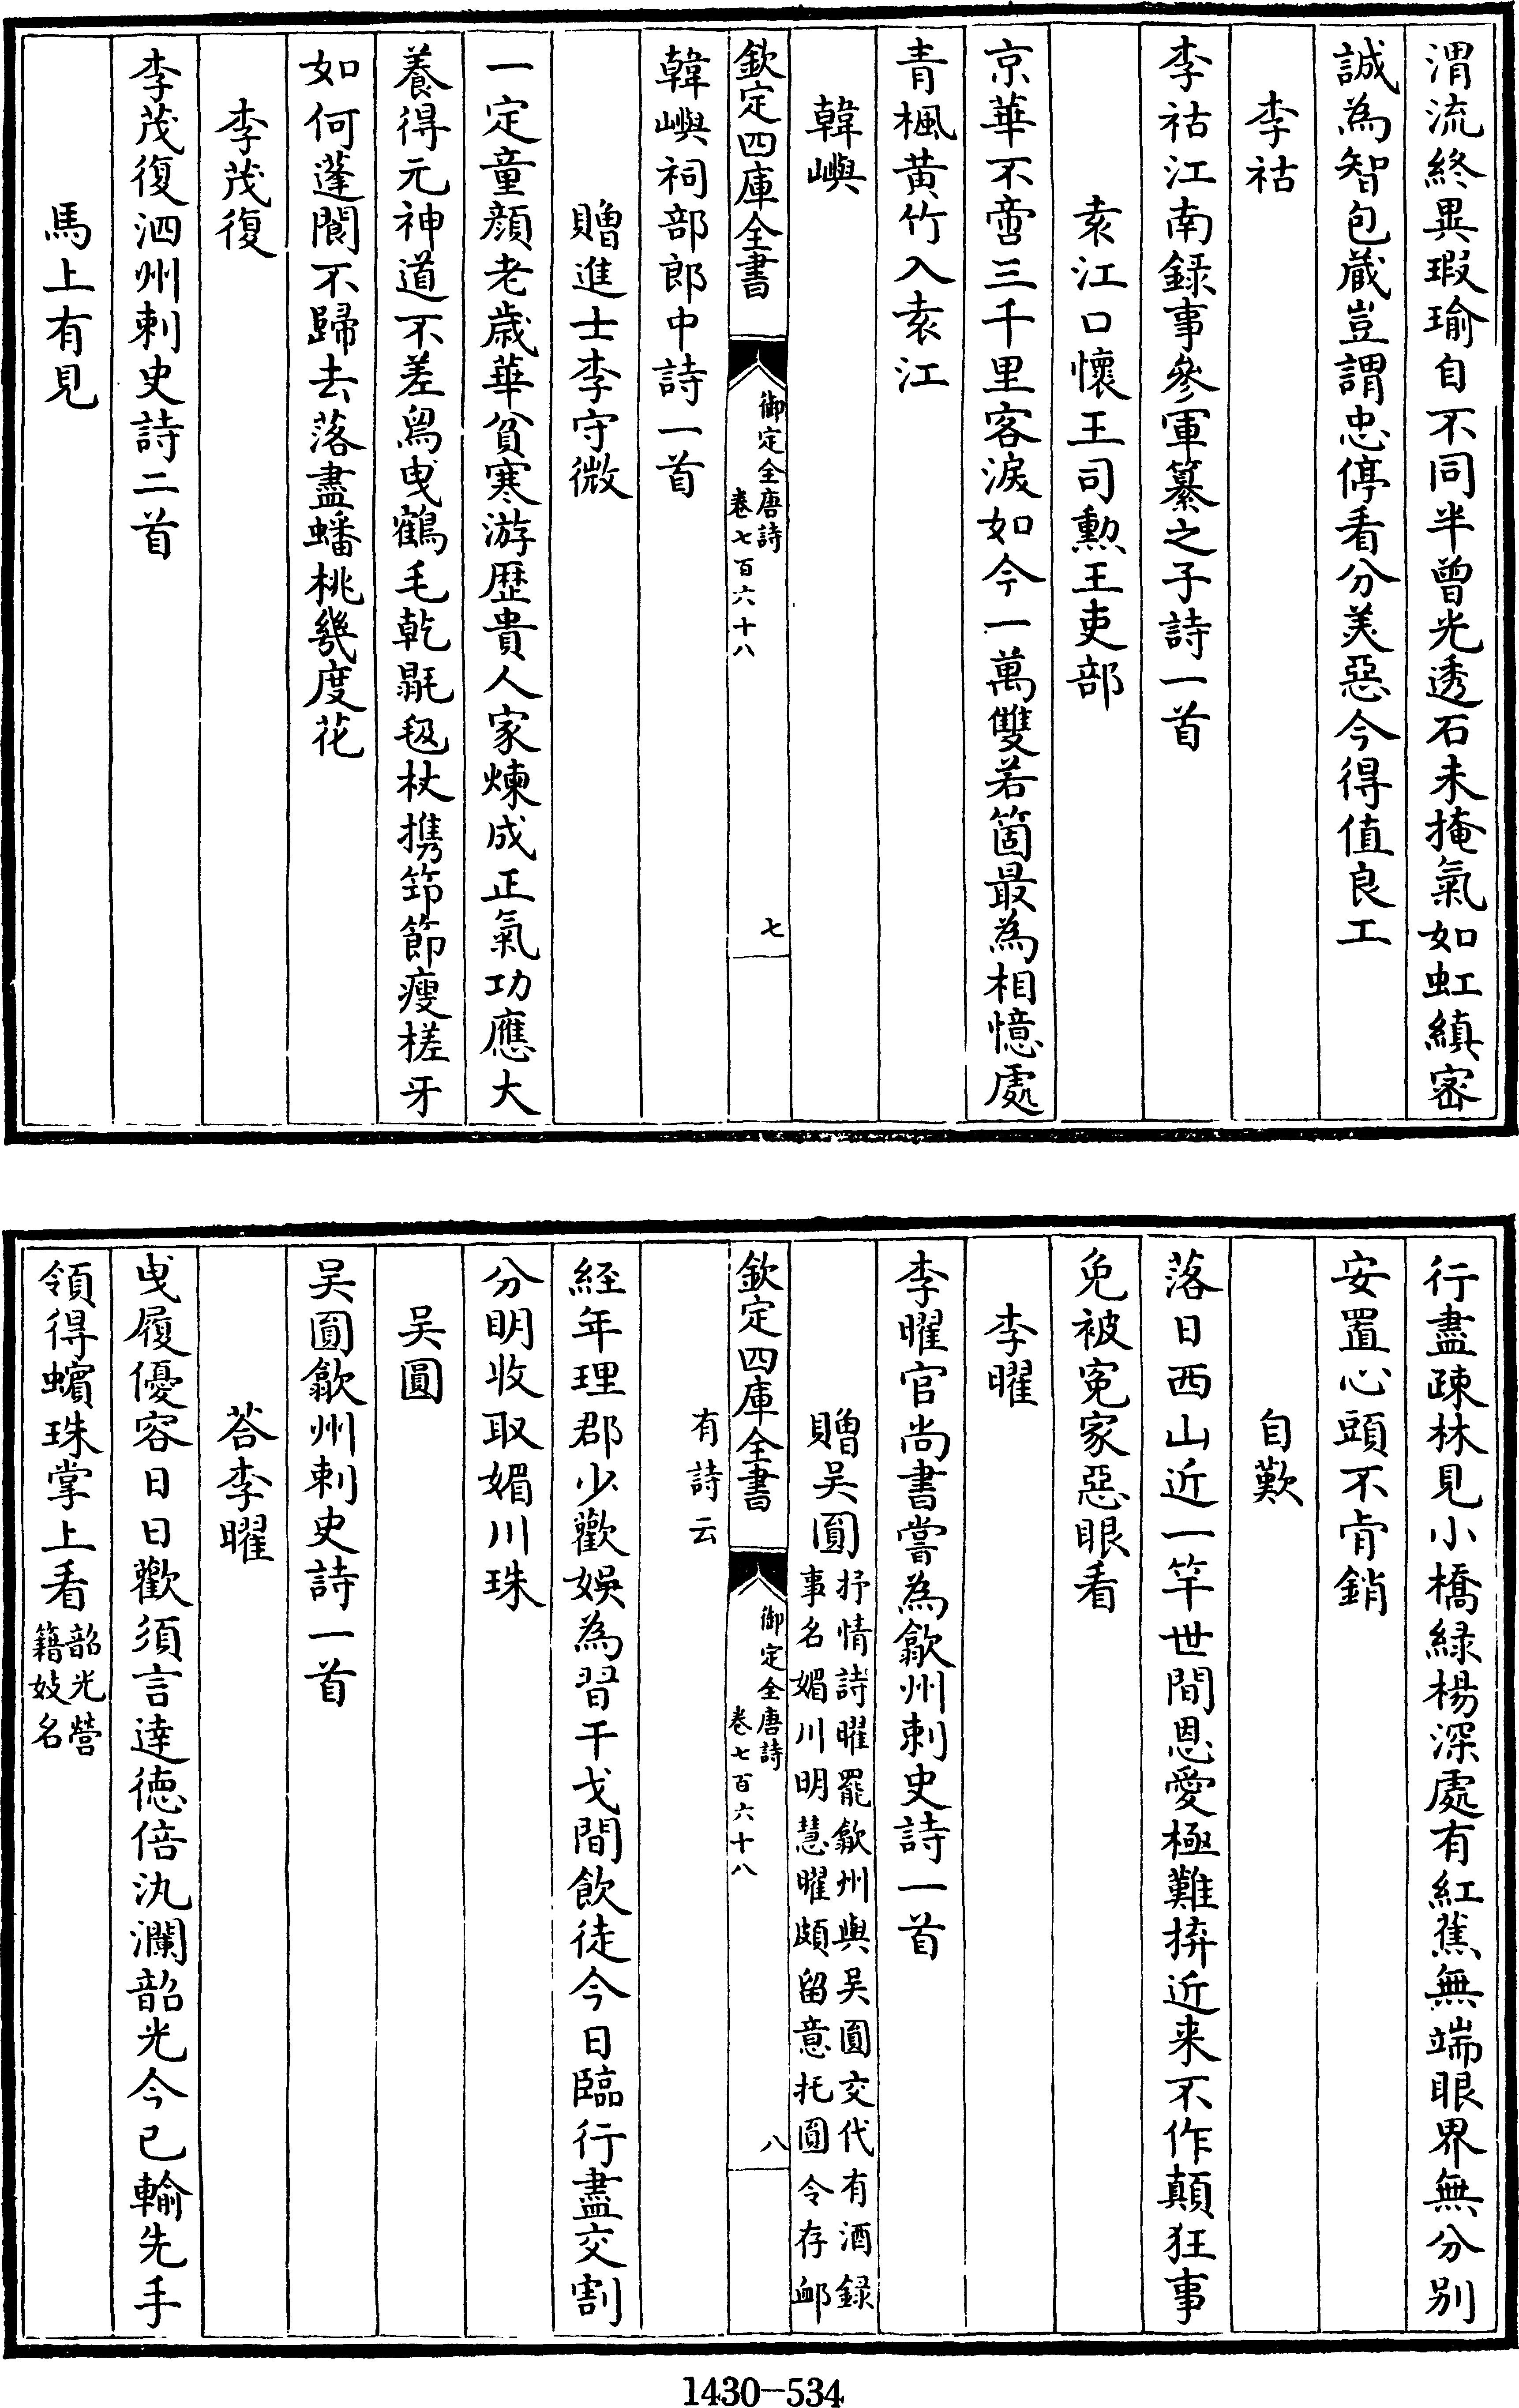 渭流終異瑕瑜自不同半曾光透石未掩氣如虹縝宻
誠為智包蔵豈謂忠停看分美惡今得值良工
李祜
李祜江南録事參軍纂之子詩一首
袁江口懷王司勲王吏部
京華不啻三千里客淚如今一萬雙若箇最為相憶處
青楓黄竹入袁江
韓嶼
欽定四庫全書
御定全唐詩
卷七百六十八
七
韓嶼祠部郎中詩一首
贈進士李守微
一定童顔老歳華貧寒游歴貴人家煉成正氣功應大
養得元神道不差舄曳鶴毛乾毾㲪杖携筇節瘦槎牙
如何蓬閬不歸去落盡蟠桃幾度花
李茂復
李茂復泗州刺史詩二首
馬上有見
行盡疎林見小橋緑楊深處有紅蕉無端眼界無分别
安置心頭不肯銷
自歎
落日西山近一竿世間恩愛極難拚近来不作顛狂事
免被寃家惡眼看
李曜
李曜官尚書嘗為歙州刺史詩一首
贈吴圎
抒情詩曜罷歙州與吴圎交代有酒録
事名媚川明慧曜頗留意托圎令存䘏
欽定四庫全書
御定全唐詩
卷七百六十八
八
有詩云
經年理郡少歡娱為習干戈間飲徒今日臨行盡交割
分明收取媚川珠
吴圎
吴圎歙州刺史詩一首
荅李曜
曳履優容日日歡須言達徳倍汍瀾韶光今已輸先手
領得蠙珠掌上看
韶光營
籍妓名
1430-534